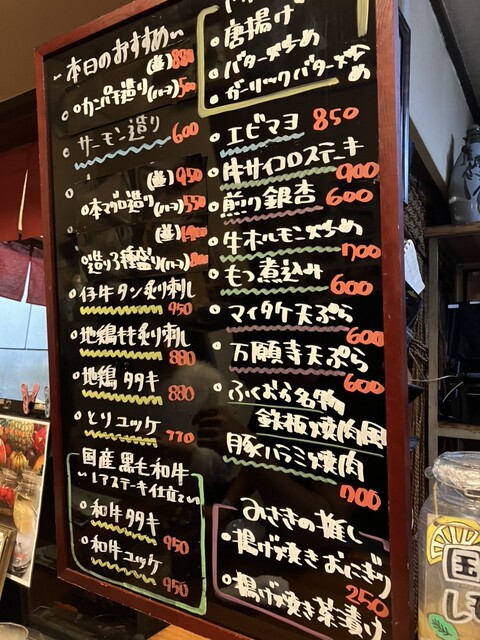 本日のおすすめ
(並)880
カンパチ造り(ハーフ)500
サーモン造り 600
(並)950
本マグロ造り(ハーフ)550
(並)1400
造り3種盛り(ハーフ)800
仔牛タン炙り刺し
950
地鶏もも炙り刺し
880
地鶏タタキ
880
とりユッケ
770
国産黒毛和牛
レアステーキ仕立
和牛タタキ
950
和牛ユッケ
950
唐揚げ
バター炒め
ガーリックバター炒め
エビマヨ 850
牛サイコロステーキ
900
煎り銀杏 600
牛ホルモン炒め
700
もつ煮込み
600
マイタケ天ぷら
600
万願寺天ぷら
600
ふくおか名物
鉄板焼肉風
豚ハラミ焼肉
700
みさきの推し
揚げ焼きおにぎり
250
揚げ焼き茶漬け
国